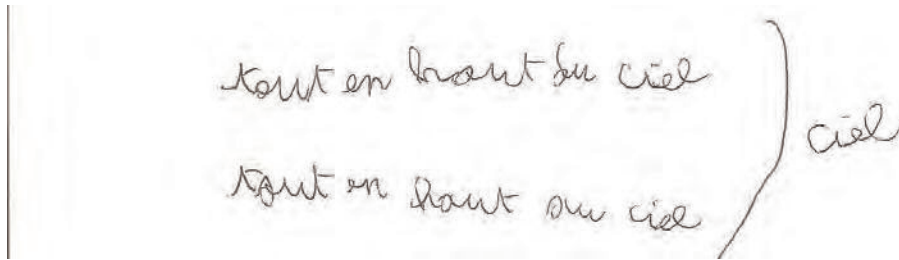 tout en haut du ciel
tout en haut du ciel
ciel